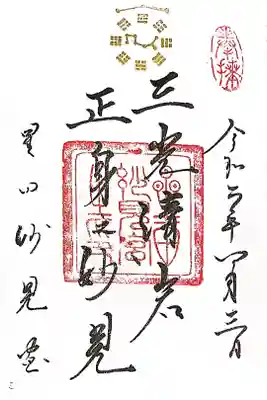 奉拝
令和二年八月三日
三光清岩
正身之妙見
星田妙見宮